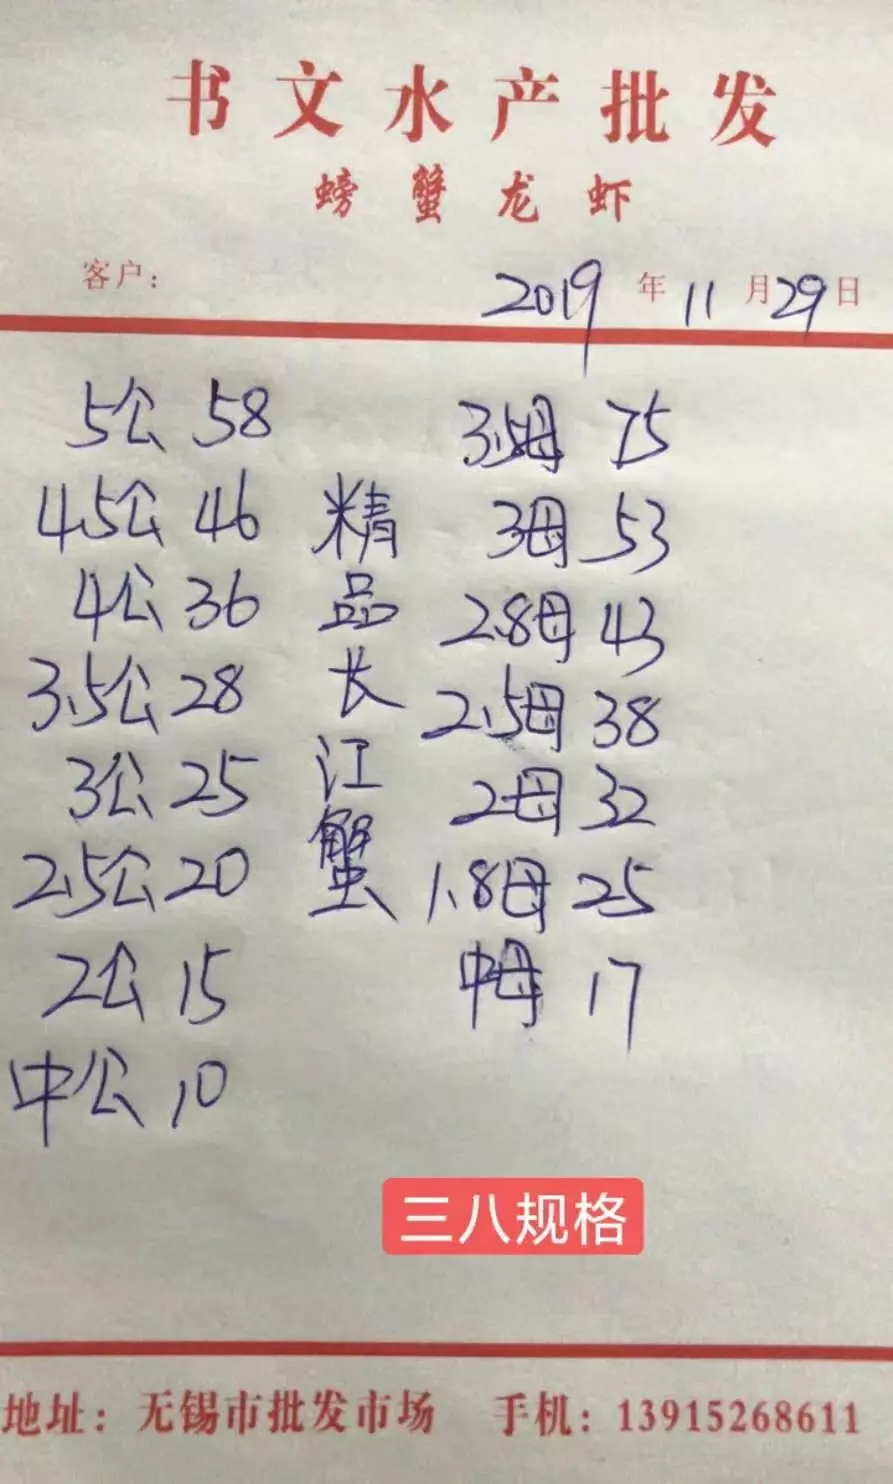 书文水产批发
螃蟹龙虾
客户： 2019年11月29日
5公 58
4.5公 46
4公 36
3.5公 28
3公 25
2.5公 20
2公 15
中公 10
精品长江蟹
3.5母 75
3母 53
2.8母 43
2.5母 38
2母 32
1.8母 25
中母 17
三八规格
地址：无锡市批发市场 手机：13915268611